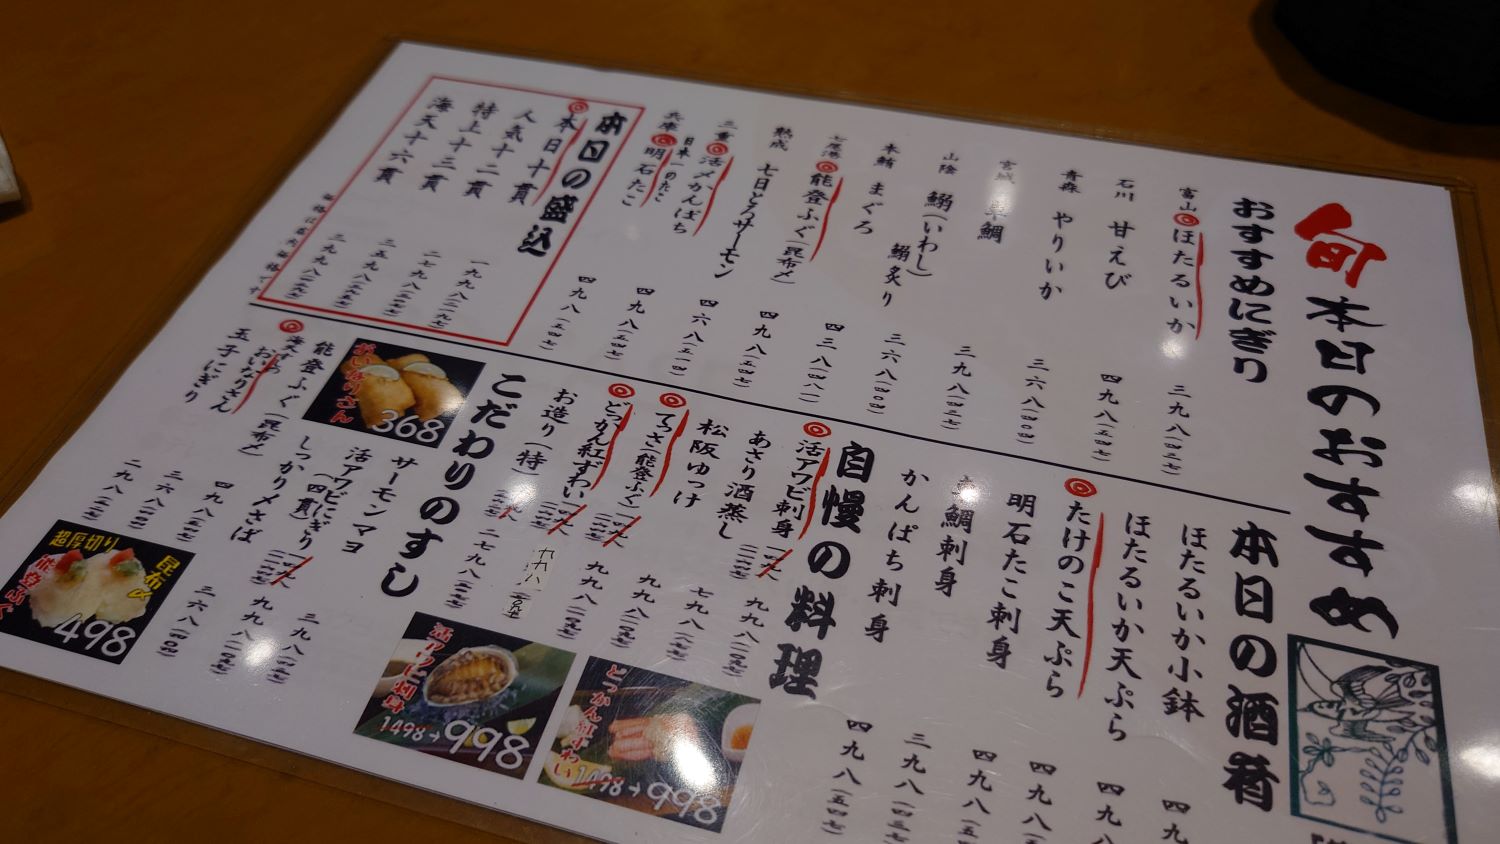 旬 本日のおすすめ
おすすめにぎり
富山 ほたるいか 三九八(四三七)
石川 甘えび 四九八(五四七)
青森 やりいか 三六八(四〇四)
宮城 真鯛 三九八(四三七)
山陰 鰯(いわし) 鰯炙り 三六八(四〇四)
本鮪 まぐろ 四三八(四八一)
七尾湾 能登ふぐ(昆布〆) 四九八(五四七)
熟成 七日とろサーモン 四六八(五一四)
三重 活〆かんぱち 四九八(五四七)
日本一のたこ
兵庫 明石たこ 四九八(五四七)
本日の盛込
本日十貫 一九九八(二一九七)
人気十二貫 二七九八
特上十二貫 三五九八
海天十六貫 三九九八
本日の酒肴
ほたるいか小鉢 四九
ほたるいか天ぷら 四九八
たけのこ天ぷら 四九八
明石たこ刺身 四九八
真鯛刺身 三九八(四三七)
かんぱち刺身 四九八(五四七)
自慢の料理
活アワビ刺身 九九八
あさり酒蒸し 七九八
松阪ゆっけ 九九八
てっさ(能登ふぐ) 九九八
どっかん紅ずわい
お造り(特) 二七九八
こだわりのすし
サーモンマヨ 三九八(四三七)
活アワビにぎり
(四貫) 九九八
しっかり〆さば 三六八(四〇四)
能登ふぐ(昆布〆) 四九八(五四七)
おいなりさん 三六八(四〇四)
玉子にぎり 二九八
おいなりさん
368
超厚切り
昆布〆
能登ふぐ
498
活アワビ刺身
1498→998
どっかん紅ずわい
1498→998